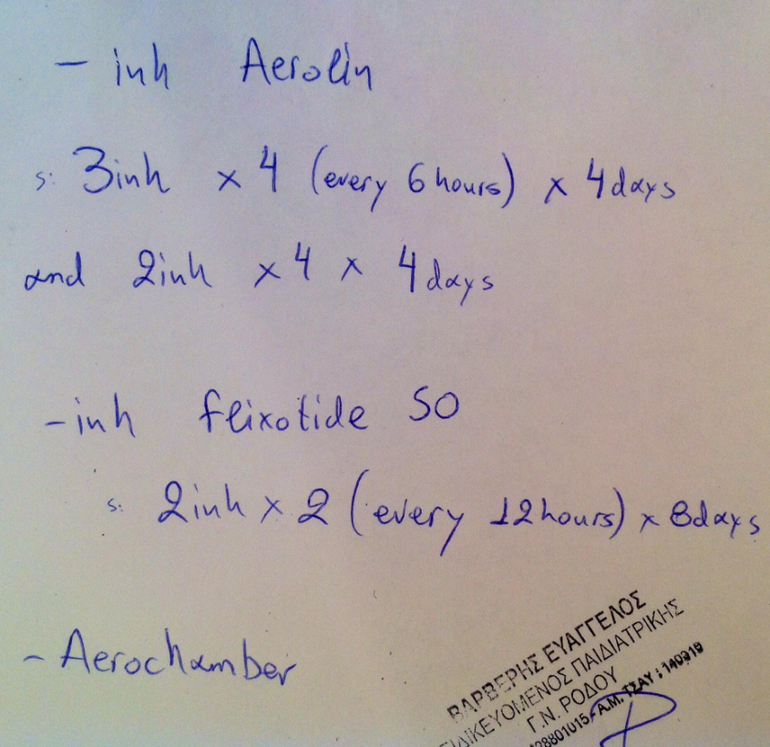 - inh Aerolin
s: 3inh x 4 (every 6 hours) x 4days
and 2inh x 4 x 4days
- inh flixotide 50
s: 2inh x 2 (every 12hours) x 8days
- Aerochamber
ΒΑΡΒΕΡΗΣ ΕΥΑΓΓΕΛΟΣ
ΕΙΔΙΚΕΥΟΜΕΝΟΣ ΠΑΙΔΙΑΤΡΙΚΗΣ
Γ.Ν. ΡΟΔΟΥ
Α.Μ. ΤΣΑΥ : 140919